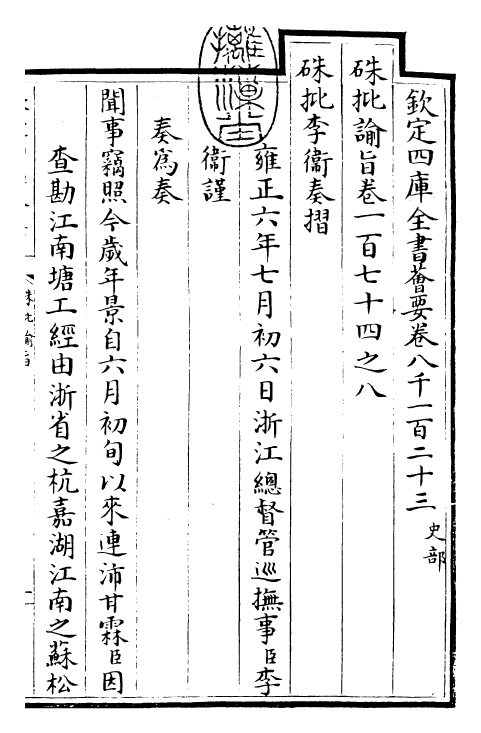 欽定四庫全書薈要卷八千一百二十三 史部
硃批諭旨卷一百七十四之八
硃批李衞奏摺
雍正六年七月初六日浙江總督管巡撫事臣李
衞謹
奏爲奏
聞事竊照今歲年景自六月初旬以來連沛甘霖臣因
查勘江南塘工經由浙省之杭嘉湖江南之蘇松
硃批諭旨